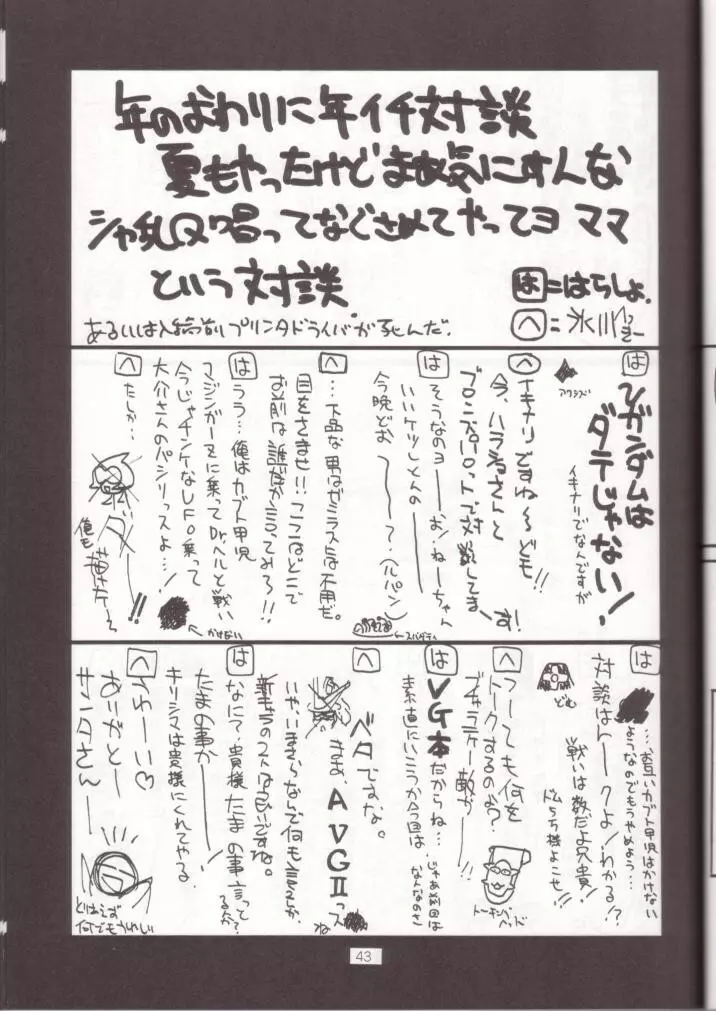 年のおわりに年イチ対談
夏もやったけどまぁ気にすんな
シャ乱Q唱ってなぐさめてやってヨ ママ
という対談
は=はらしょ。
へ=氷川
あるいは入稿前プリンタドライバが死んだ.
は
Vガンダムは
ダテじゃない!
イキナリでなんですが
アクシズ
へ
イキナリですね〜ども!!
今、ハラショさんと
ブロンズパロットで対談してま〜す!
は
そうなのヨ――お!ねーちゃん
いいケツしとんの――
今晩どお
〜〜〜って、(ルパン)
へ
…下品な男はゼミラスには不用だ。
目をさませ!!ここはどこで
お前は誰だか言ってみろ!!
は
うう…俺はカブト甲児
マジンガーZに乗ってDr.ヘルと戦い
今じゃチンケなUFO乗って
大介さんのパシリっスよ…!
かけない
へ
たしか…
ダ――!!
俺も
描けた〜
は
…お互いカブト甲児はかけない
ようなのでもうやめよう…
対談はトークよ!わかる!?
戦いは数だよ兄貴!
ドムら5機よこせ!!
どむ
へ
つーても何を
トークするのよ?
ブチャラティー敵か――!!
トーキングヘッド
は
VG本だからね…
素直にいこうか今回は
じゃあ前回は
なんなのさ
へ
ベタですな。
まぁ、AVGIIっスね
いや、いまさらなんで何も言えんが
新キャラの2人は良いですね。
は
なにィ〜貴様たまの事言ってるのか?
たまの事か――!
キリシマは貴様にくれてやる
へ
うわーい♡
ありがとー
サンタさん――
とりあえず
何でもうれしい
43